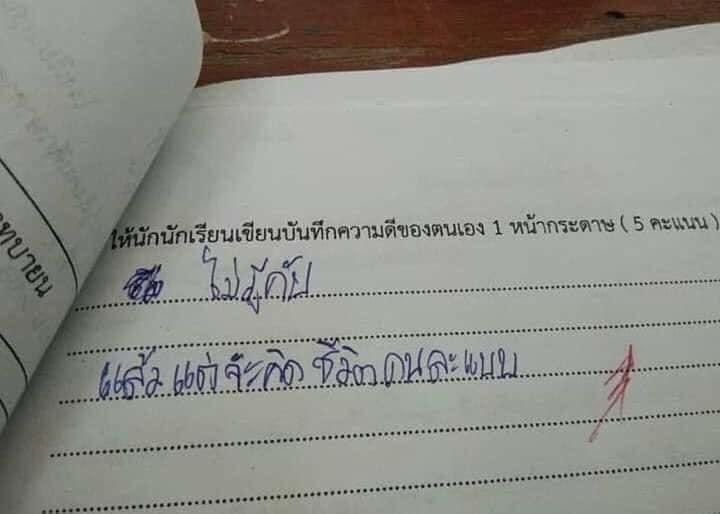 ให้นักนักเรียนเขียนบันทึกความดีของตนเอง 1 หน้ากระดาษ ( 5 คะแนน )
ไม่รู้คับ
แล้ว แต่จะคิด ชีวิต คนละแบบ
ทบายน